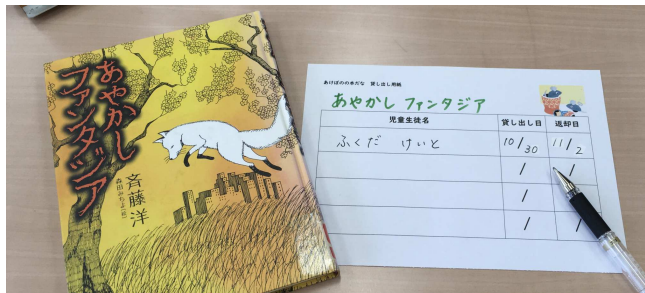 あやかし
ファンタジア
斉藤洋
森田みちよ(絵)
あけぼのの本だな 貸し出し用紙
あやかし ファンタジア
児童生徒名 貸し出し日 返却日
ふくだ けいと 10/30 11/2
/ /
/ /
/ /